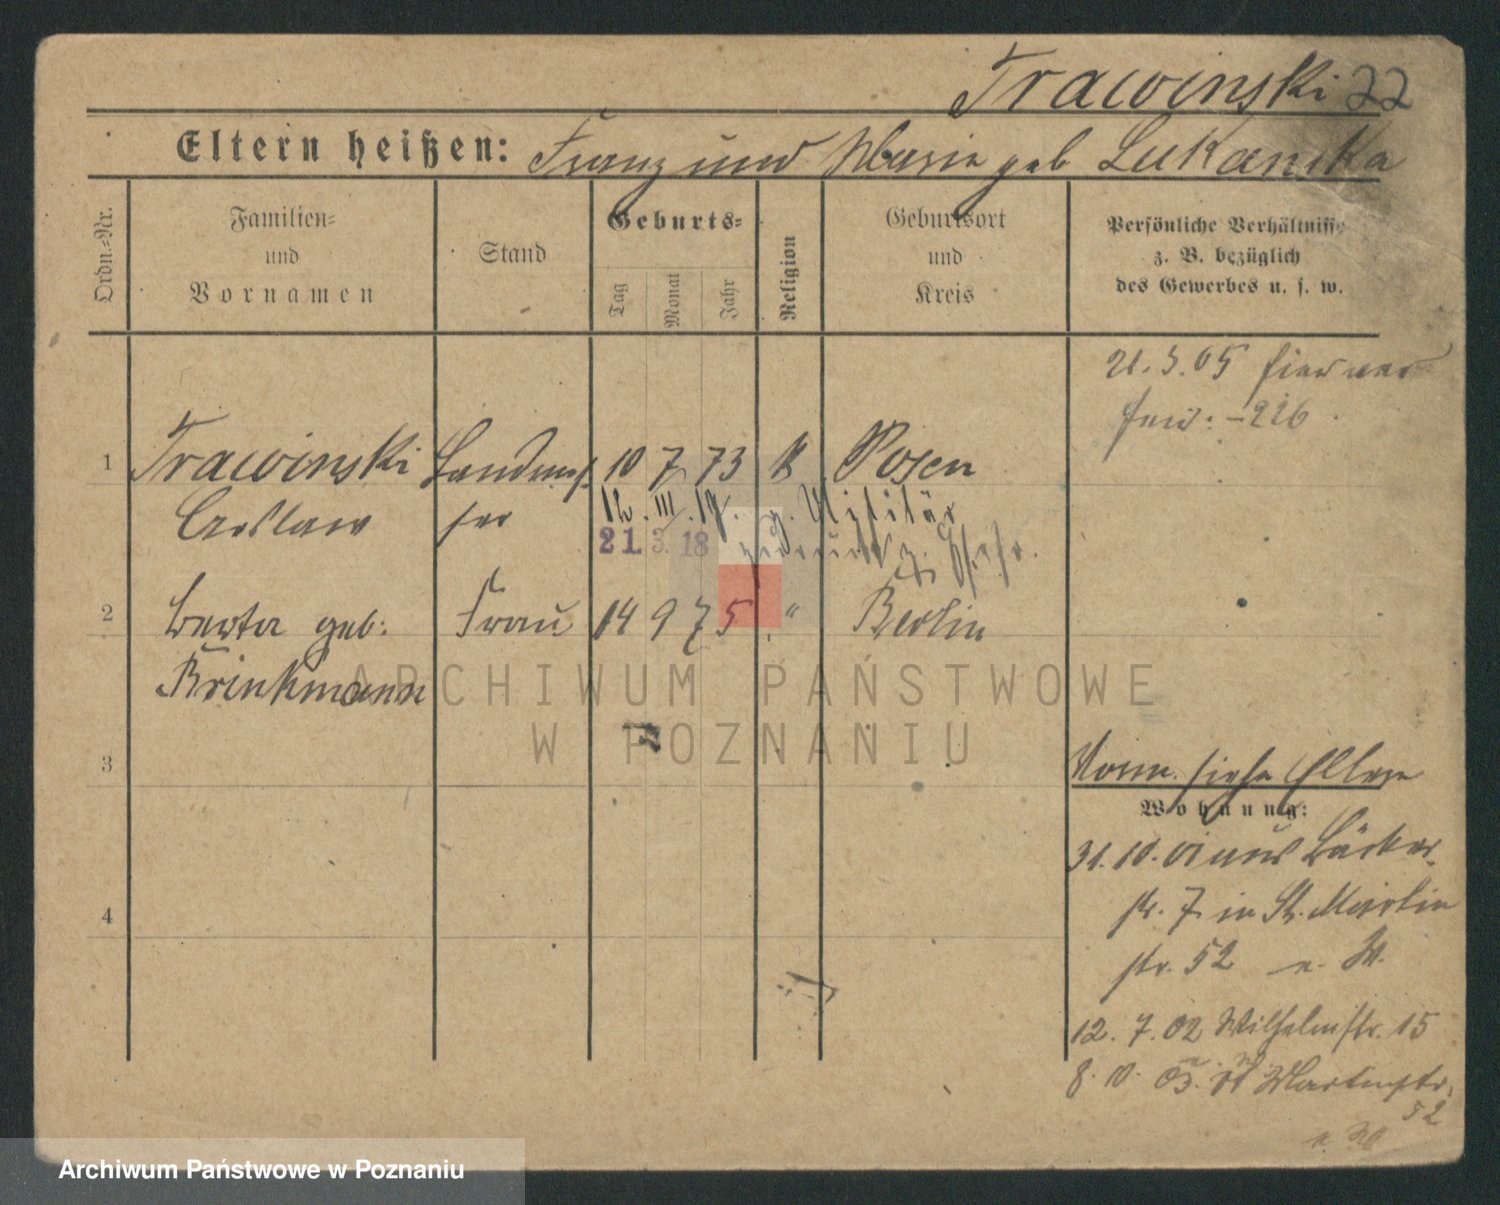 Trawinski 22
Eltern heißen: Franz und Marie geb Lukanska
Ordn.-Nr.
Familien-
und
Vornamen
Stand
Geburts-
Tag
Monat
Jahr
Religion
Geburtsort
und
Kreis
Persönliche Verhältnisse
z. B. bezüglich
des Gewerbes u. s. w.
21.3.05
226
1 Trawinski 10 7 73 k Posen
12. III. 19. z. Militär
21. 3. 18
2 Berta geb: Frau 14 9 75 " Berlin
Brinkmann
3
Norm. siehe Eltern
Wohnung:
31.10.01 aus Bäcker-
str. 7 in St. Martin
str. 52 n. W.
4
12. 7. 02 Wilhelmstr. 15
8. 10. 03. St Martinstr.
52
ARCHIWUM PAŃSTWOWE
W POZNANIU
Archiwum Państwowe w Poznaniu